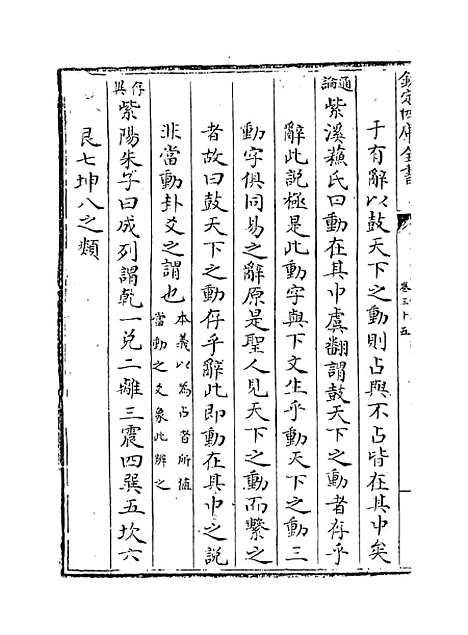 欽定四庫全書
卷三十五
于有辭以鼓天下之動則占與不占皆在其中矣
通論
紫溪蘇氏曰動在其中虞翻謂鼓天下之動者存乎
辭此説極是此動字與下文生乎動天下之動三
動字俱同易之辭原是聖人見天下之動而繫之
者故曰鼓天下之動存乎辭此即動在其中之説
非當動卦爻之謂也本義以為占者所值
當動之爻象此辨之
存異
紫陽朱子曰成列謂乾一兑二離三震四巽五坎六
艮七坤八之類